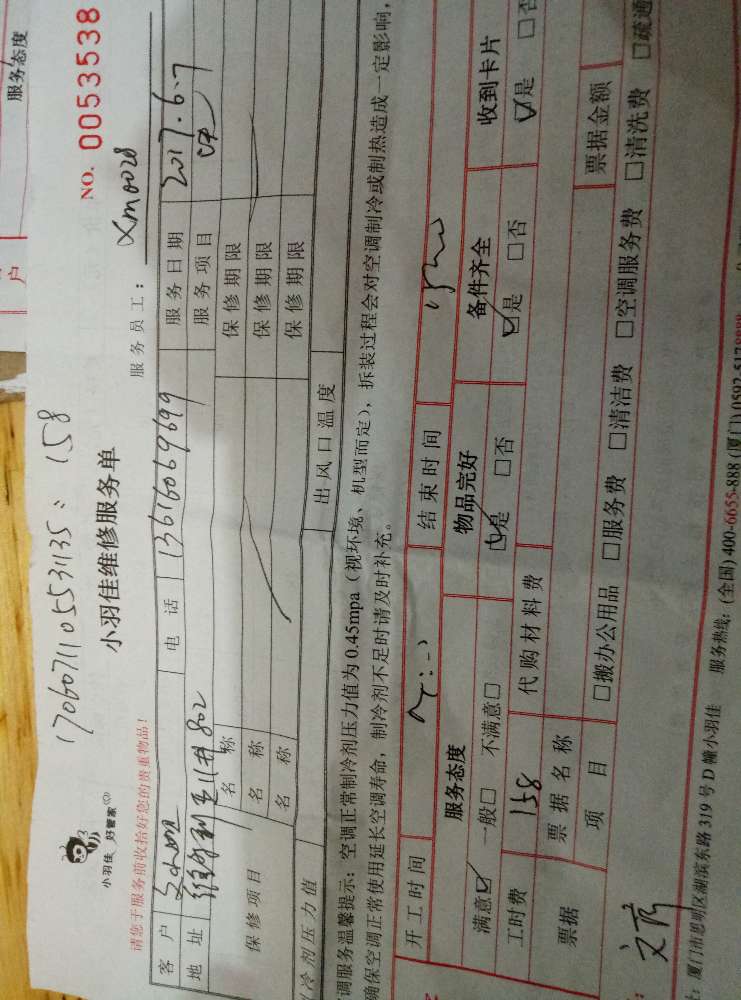 服务态度
户
1706071105531135: 158
NO. 0053538
小羽佳 好管家
小羽佳维修服务单
服务员工: Xm0028
请您于服务前收拾好您的贵重物品!
客户 电话 13616069699 服务日期 2017.6.7
地址 802 服务项目
保修项目
名称 保修期限
名称 保修期限
名称 保修期限
冷剂压力值 出风口温度
调服务温馨提示: 空调正常制冷剂压力值为0.45mpa (视环境、机型而定), 拆装过程会对空调制冷或制热造成一定影响,
确保空调正常使用延长空调寿命, 制冷剂不足时请及时补充。
开工时间 结束时间
服务态度 物品完好 备件齐全 收到卡片
满意☑ 一般□ 不满意□ ☑是 □否 ☑是 □否 ☑是 □否
工时费 158 代购材料费
票据 票据名称 票据金额
项目 □搬办公用品 □服务费 □清洁费 □空调服务费 □清洗费 □疏通
: 厦门市思明区湖滨东路319号D幢小羽佳 服务热线: (全国) 400-6655-888 (厦门) 0592-5178888